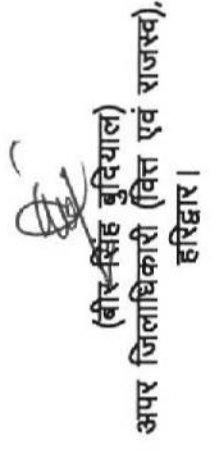 (बीर सिंह बुदियाल)
अपर जिलाधिकारी (वित्त एवं राजस्व),
हरिद्वार।